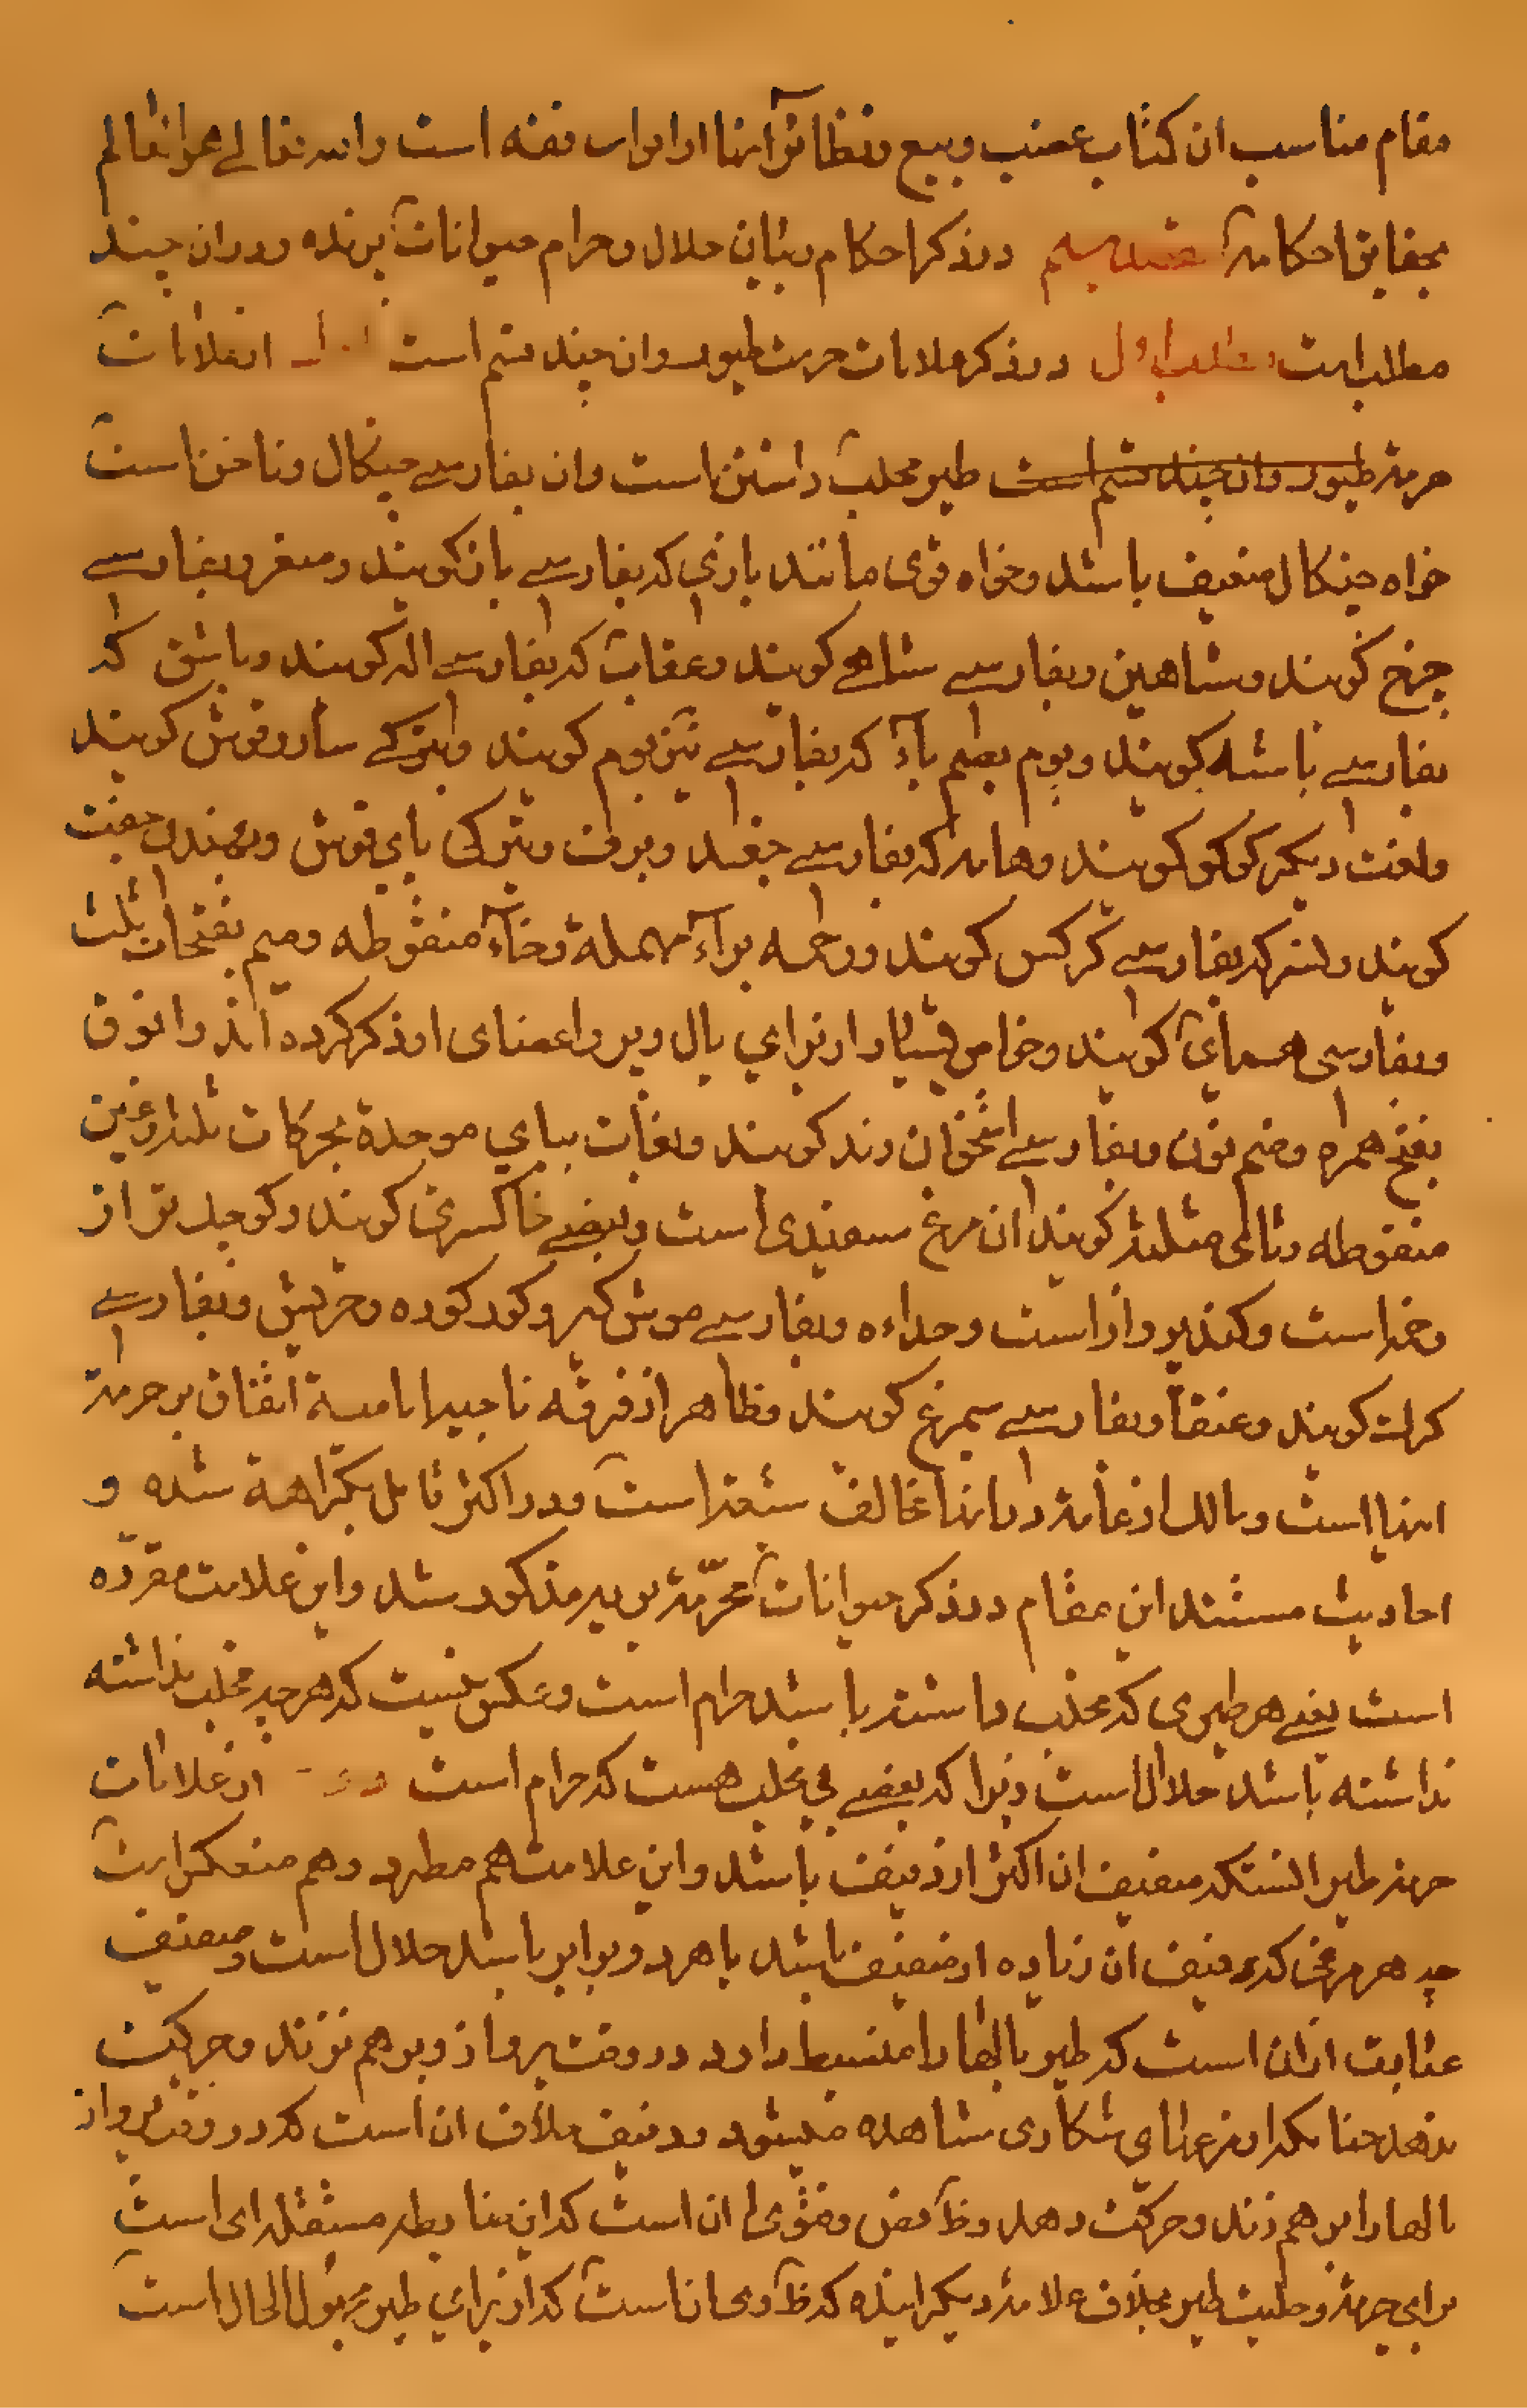 مقام مناسب ان کتاب غصب وبیع ونظائر آنها از ابواب فقه است والله تعالی هو العالم
بحقایق احکامه مقصد سیم در ذکر احکام وبیان حلال وحرام حیوانات پرنده ودران چند
مطلب است مطلب اول در ذکر علامات حرمت طیور وان چند قسم است اول از علامات
حرمة طیور وان چند قسم است طیر مخلب داشتن است وان بفارسی چنکال وناخن است
خواه چنکال ضعیف باشد وخواه قوی مانند بازی که بفارسی باز کویند وصقر وبفارسی
چرخ کویند وشاهین وبفارسی شاهی کویند وعقاب که بفارسی اله کویند وباشق که
بفارسی باشه کویند وبوم بضم باء که بفارسی نیز بوم کویند وبترکی ساروقوش کویند
ولغت دیکر کوکو کویند وهامه که بفارسی جغد وبوف وبترکی بای قوش وبهندی جفت
کویند ونسر که بفارسی کرکس کویند ورخمه براء مهملة وخاء منقوطه ومیم بفتحات ثلث
وبفارسی همای کویند وخواص بسیار از برای بال وپر واعضای او ذکر کرده اند وانوق
بفتح همزه وضم نون وبفارسی استخوان رند کویند وبغاث ببای موحدة بحرکات ثلثه وغین
منقوطه وثای مثلثه کویند ان مرغ سفیدی است وبعضی خاکستری کویند وکوچک تر از
رخمه است وکند پرواز است وحداءه وبفارسی موش کیر وکورکوره وخرپش وبفارسی
کرلت کویند وعنقا وبفارسی سیمرغ کویند وظاهر از فرقه ناجیه امامیه اتفاق بر حرمة
اینها است ومالک از عامه در اینها مخالف شیعه است ودر اکثر قائل بکراهة شده و
احادیث مستند این مقام در ذکر حیوانات محرمة بریه مذکور شد واین علامت مطرده
است یعنی هر طیری که مخلب داشته باشد حرام است وعکس نیست که هر چه مخلب نداشته
نداشته باشد حلال است زیرا که بعضی بی مخلب هست که حرام است دوم از علامات
حرمة طیر انستکه صفیف ان اکثر از دفیف باشد واین علامت هم مطرد وهم منعکس است
چه هر مرغی که دفیف ان زیاده از صفیف باشد یا هر دو برابر باشد حلال است وصفیف
عبارت از ان است که طیر بالها را منبسط دارد در وقت پرواز وبرهم نزند وحرکت
ندهد چنانکه از مرغهای شکاری مشاهده میشود ودفیف خلاف ان است که در وقت پرواز
بالها را برهم زند وحرکت دهد وظ نص وفتوی ان است که این ضابطه مستقله ای است
برای حرمة وحلیت طیر بخلاف علامة دیکر اینده که ظ ادی ان است که از برای طیر مجهول الحال است